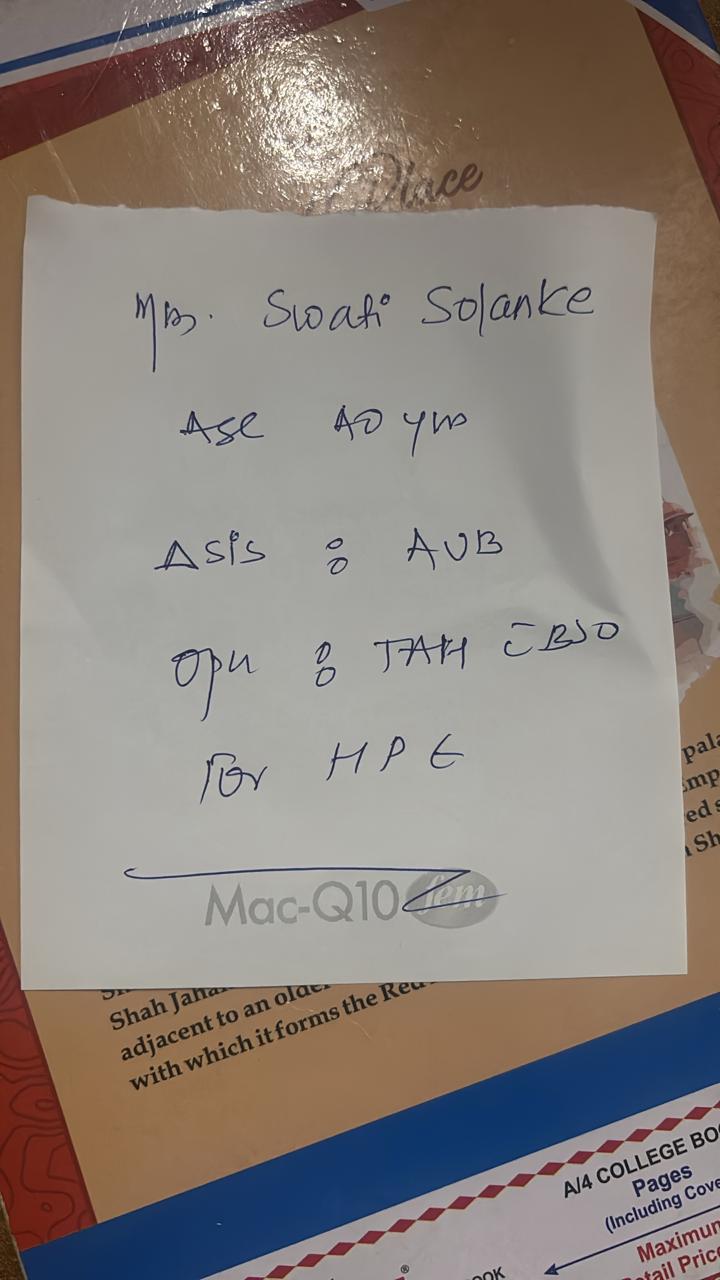 Place
Mrs. Swati Solanke
Age 40 yrs
Δsis : AUB
Opn : TAH c̄ BSO
For HPE
Mac-Q10 fem
Shah Jaha
adjacent to an older
with which it forms the Red
pala
Emp
ed s
Sh
A/4 COLLEGE BOO
Pages
(Including Cove
Maximum
tail Price
OOK
®